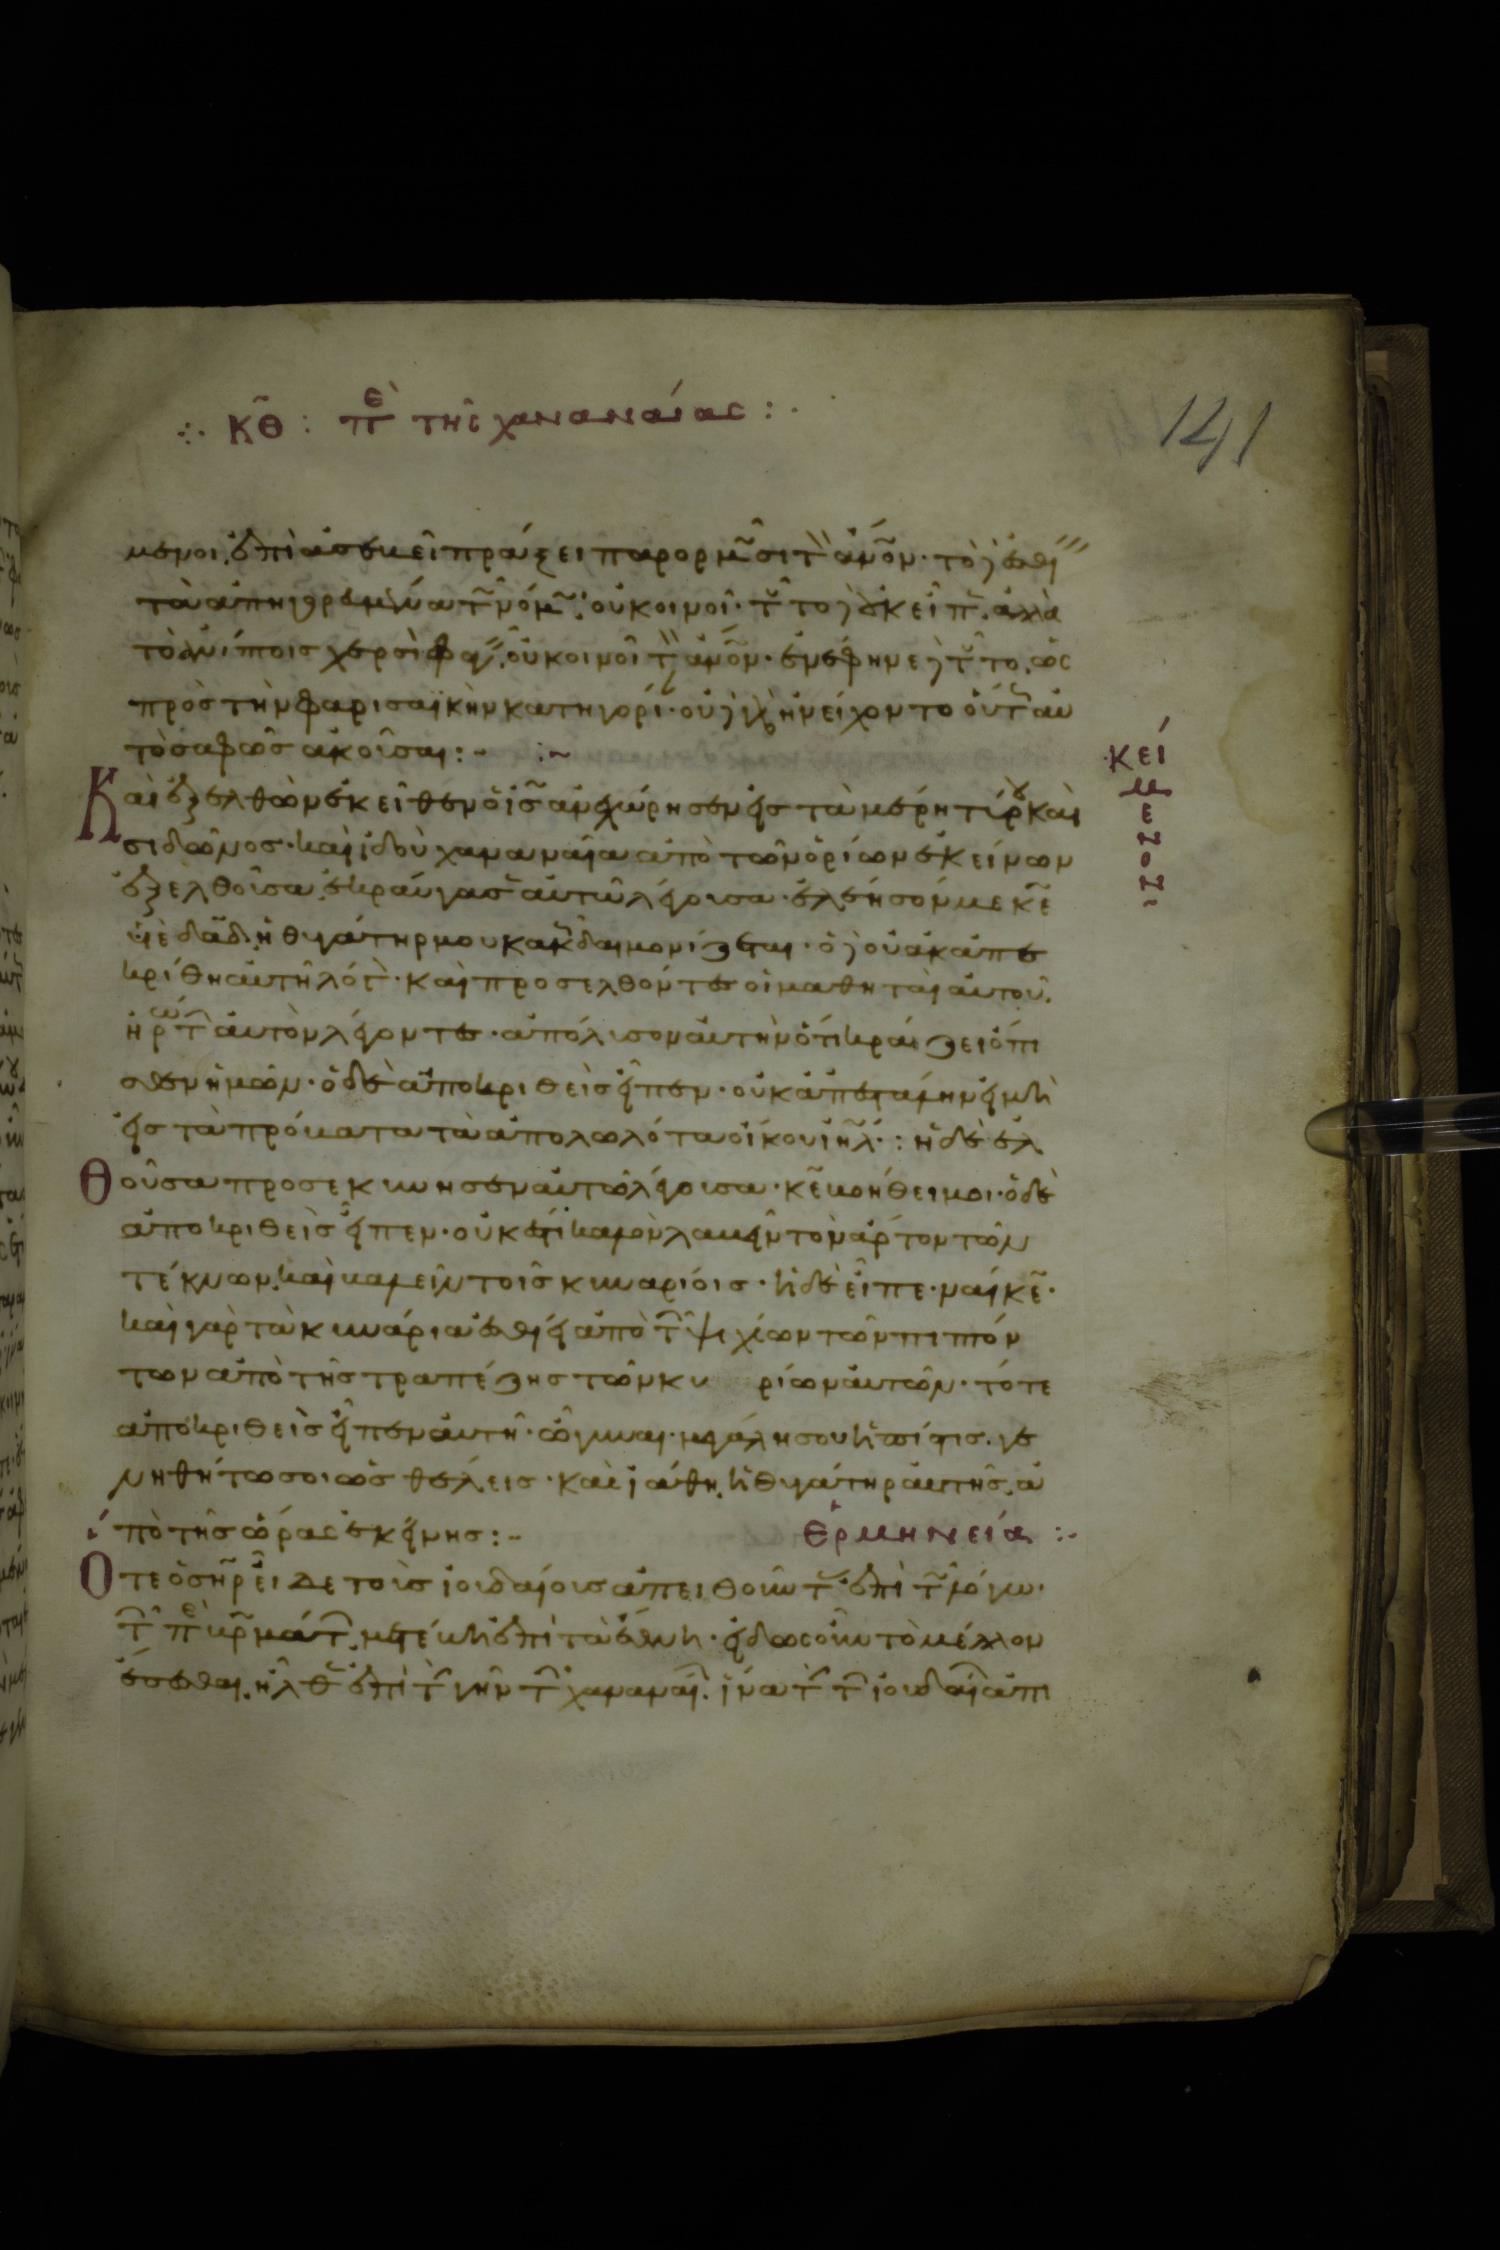 κθ : πε τῆς χαναναίας :
141
μενοι, ἐπὶ ἀσεβεῖ πράξει παρορμῶσι τ ἄνον· τὸ
τὰ ἀπηγορευμένα τ νόμ, οὐ κοινοῖ· τοῦτο ἐκεῖ π. ἀλλὰ
τὸ ἀνίπτοις χερσὶ φαγ οὐ κοινοῖ τ ἄνον· ἐνέφηνε τοῦτο, ὡς
πρὸς τὴν φαρισαϊκὴν κατηγορί· οὐ ἠνείχοντο οὗτ αὐ
τὸ σαφῶς ἀκοῦσαι :-
κείμενον
Καὶ ἐξελθὼν ἐκεῖθεν ὁ ις ἀνεχώρησεν εἰς τὰ μέρη τύρου καὶ
σιδῶνος· καὶ ἰδοὺ χαναναία ἀπὸ τῶν ὁρίων ἐκείνων
ἐξελθοῦσα, ἐκραύγασεν αὐτῶ λέγουσα· ἐλέησόν με κε
υἱὲ δαδ, ἡ θυγάτηρ μου κακῶς δαιμονίζεται· ὁ δὲ οὐκ ἀπε
κρίθη αὐτῆ λόγον· καὶ προσελθόντες οἱ μαθηταὶ αὐτοῦ,
ἠρώτ αὐτὸν λέγοντες· ἀπόλυσον αὐτὴν ὅτι κράζει ὄπι
σθεν ἡμῶν· ὁ δὲ ἀποκριθεὶς εἶπεν· οὐκ ἀπεστάλην εἰ μὴ
εἰς τὰ πρόβατα τὰ ἀπολωλότα οἴκου ιηλ· : ἡ δὲ ἐλ
θοῦσα προσεκύνησεν αὐτῶ λέγουσα· κε βοήθει μοι· ὁ δὲ
ἀποκριθεὶς εἶπεν· οὐκ ἔστι καλὸν λαβεῖν τὸν ἄρτον τῶν
τέκνων, καὶ βαλεῖν τοῖς κυναρίοις· ἡ δὲ εἶπε· ναί κε·
καὶ γὰρ τὰ κυνάρια ἐσθίει ἀπὸ τ ψιχίων τῶν πιπτόν
των ἀπὸ τῆς τραπέζης τῶν κυ ρίων αὐτῶν· τότε
ἀποκριθεὶς εἶπεν αὐτῆ· ὦ γύναι· μεγάλη σου ἡ πίστις. γε
νηθήτω σοι ὡς θέλεις· καὶ ἰάθη ἡ θυγάτηρ αὐτῆς ἀ
πὸ τῆς ὥρας ἐκείνης :- ἑρμηνεία :-
Ὅτε ὁ σηρ εἶδε τοὺς ἰουδαίους ἀπειθοῦντ ἐπὶ τ λόγω·
τ πε βρωμάτ, μετέβη ἐπὶ τὰ ἔθνη· εἰδὼς οὖν τὸ μέλλον
ἔσεσθαι, ἦλθεν ἐπὶ τ γῆν τ χαναναί, ἵνα τ τ ἰουδαί ἀπι